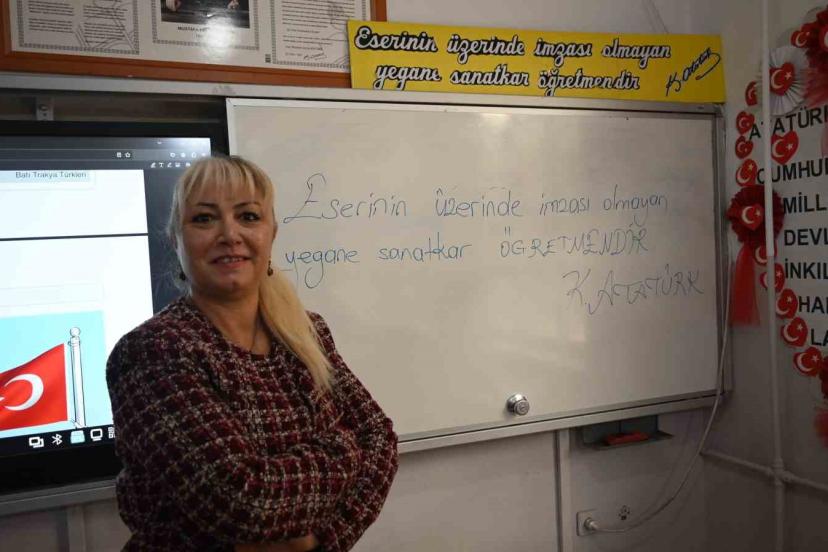 MUSTAFA KEMAL
Eserinin üzerinde imzası olmayan
yegane sanatkar öğretmendir
K. Atatürk
Batı Trakya Türkleri
Eserinin üzerinde imzası olmayan
yegane sanatkar ÖGRETMENDİR
K. ATATÜRK
ATATÜR
CUMHU
MİLL
DEVL
İNKIL
HAL
LA